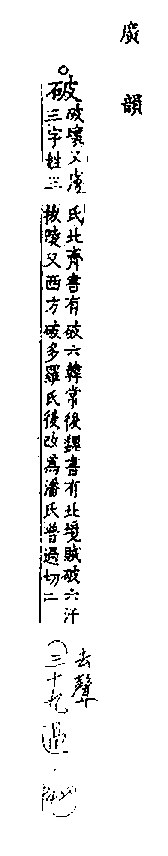 廣韻
破
破壞又虜
三字姓三
氏北齊書有破六韓常後魏書有北境賊破六汗
拔陵又西方破多羅氏後改為潘氏普過切二
去聲
三十九過